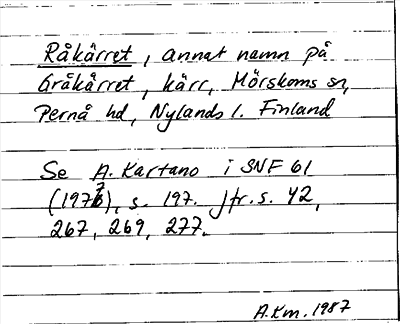 Råkärret, annat namn på
Gråkärret, kärr, Mörskoms sn,
Pernå hd, Nylands l. Finland
Se A. Kartano i SNF 61
(1977), s. 197. Jfr. s. 42,
267, 269, 277.
A.Km. 1987